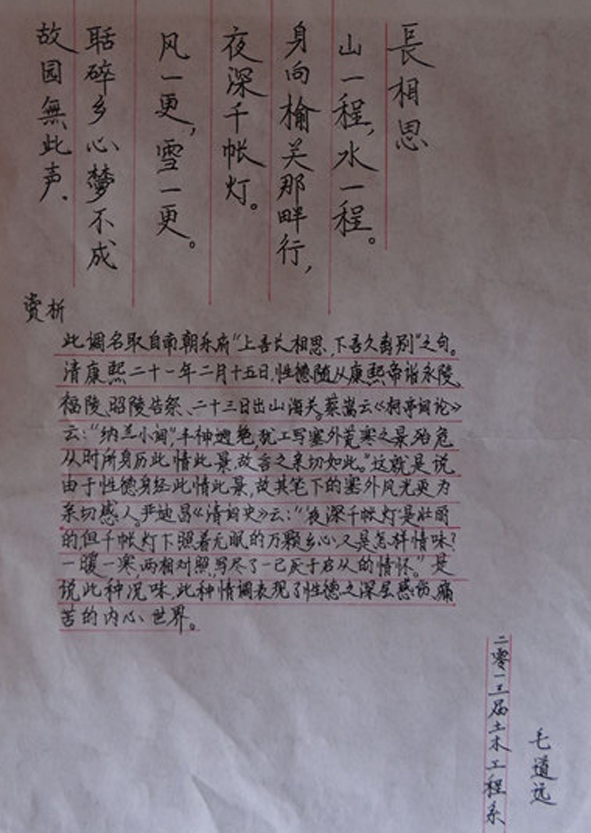 長相思
山一程，水一程。
身向榆关那畔行，
夜深千帐灯。
风一更，雪一更。
聒碎乡心梦不成
故园無此声.
赏析
此调名取自南朝乐府“上言长相思，下言久离别”之句。
清康熙二十一年二月十五日，性德随从康熙帝诣永陵、
福陵、昭陵告祭、二十三日出山海关。蔡嵩云《柯亭词论》
云：“纳兰小词，丰神迥绝，尤工写塞外荒寒之景，殆危
从时所身历此情此景，故言之亲切如此。”这就是说
由于性德身经此情此景，故其笔下的塞外风光更为
亲切感人。严迪昌《清词史》云：“夜深千帐灯是壮丽
的，但千帐灯下照着无眠的万颗乡心，又是怎样情味？
一暖一寒，两相对照，写尽了一己厌于扈从的情怀。”是
说此种况味，此种情调表现了性德之深层感伤、痛
苦的内心世界。
二零一三届土木工程系
毛道远